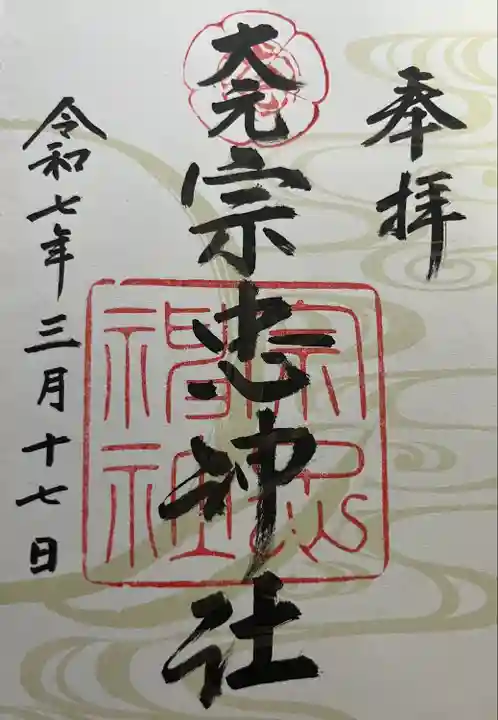 奉拝
大元
宗忠神社
令和七年三月十七日
宗忠
神社